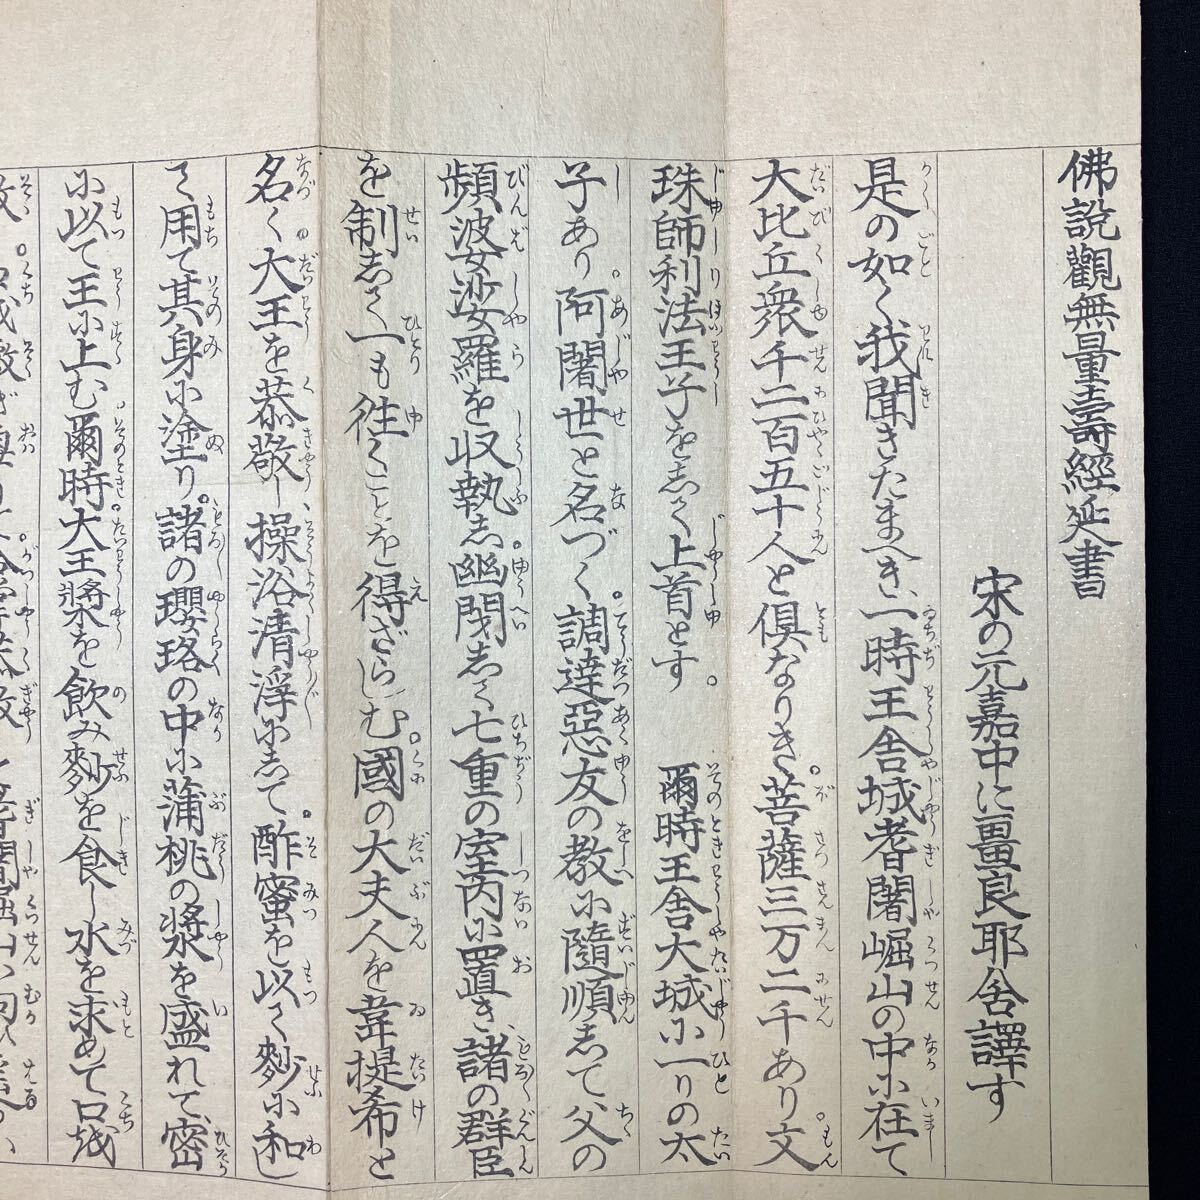 佛說觀無量壽經延書
宋の元嘉中に畺良耶舍譯す
是の如く我聞きたまへき、一時王舍城耆闍崛山の中に在て
大比丘衆千二百五十人と俱なりき。菩薩三万二千あり。文
珠師利法王子をして上首とす。爾時王舍大城に一りの太
子あり。阿闍世と名づく。調達惡友の教に隨順して父の
頻婆娑羅を収執し。幽閉して七重の室内に置き、諸の群臣
を制して一も徃くことを得ざらしむ。國の大夫人を韋提希と
名く。大王を恭敬し、操浴清浄にして。酢蜜を以て麨に和し
て用て其身に塗り。諸の瓔珞の中に蒲桃の漿を盛れて、密
に以て王に上む。爾時。大王漿を飲み麨を食し水を求めて口を